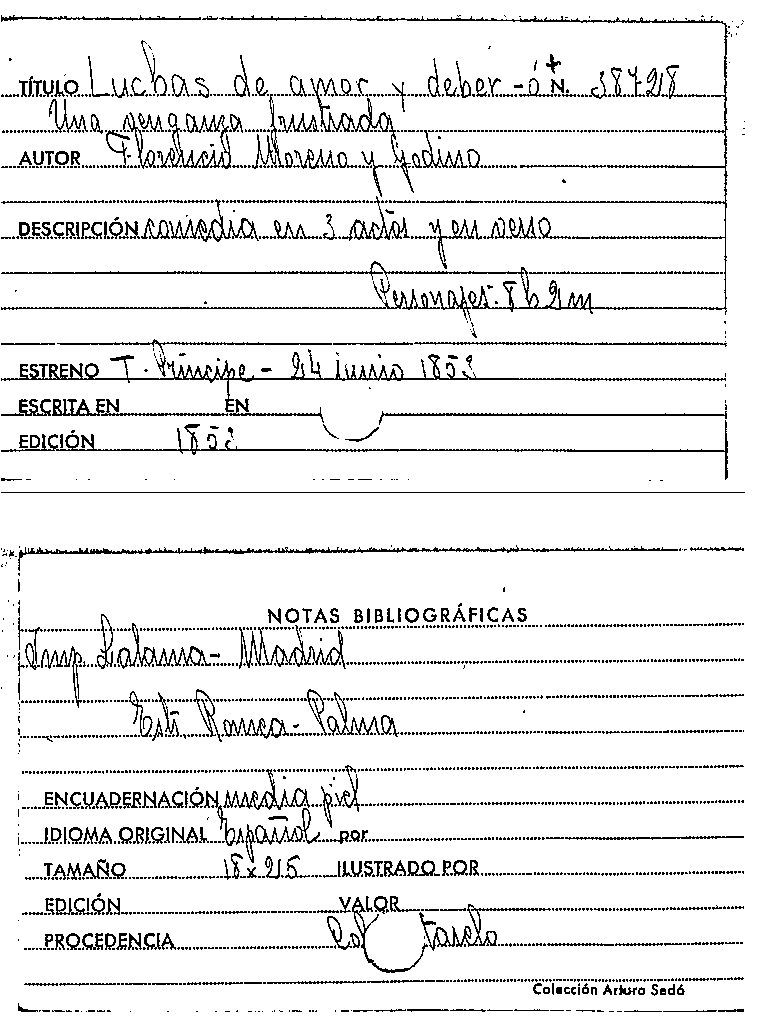 TÍTULO Luchas de amor y deber - ó N. 38728
Una venganza frustrada
AUTOR Florencio Moreno y Godino
DESCRIPCIÓN comedia en 3 actos y en verso
Personajes. 8 h 2 m
ESTRENO T. Príncipe - 24 junio
ESCRITA EN EN
EDICIÓN
NOTAS BIBLIOGRÁFICAS
Imp Lalama - Madrid
Palma
ENCUADERNACIÓN media piel
IDIOMA ORIGINAL Español por
TAMAÑO 18 x 215 ILUSTRADO POR
EDICIÓN VALOR
PROCEDENCIA
Colección Arturo Sedó